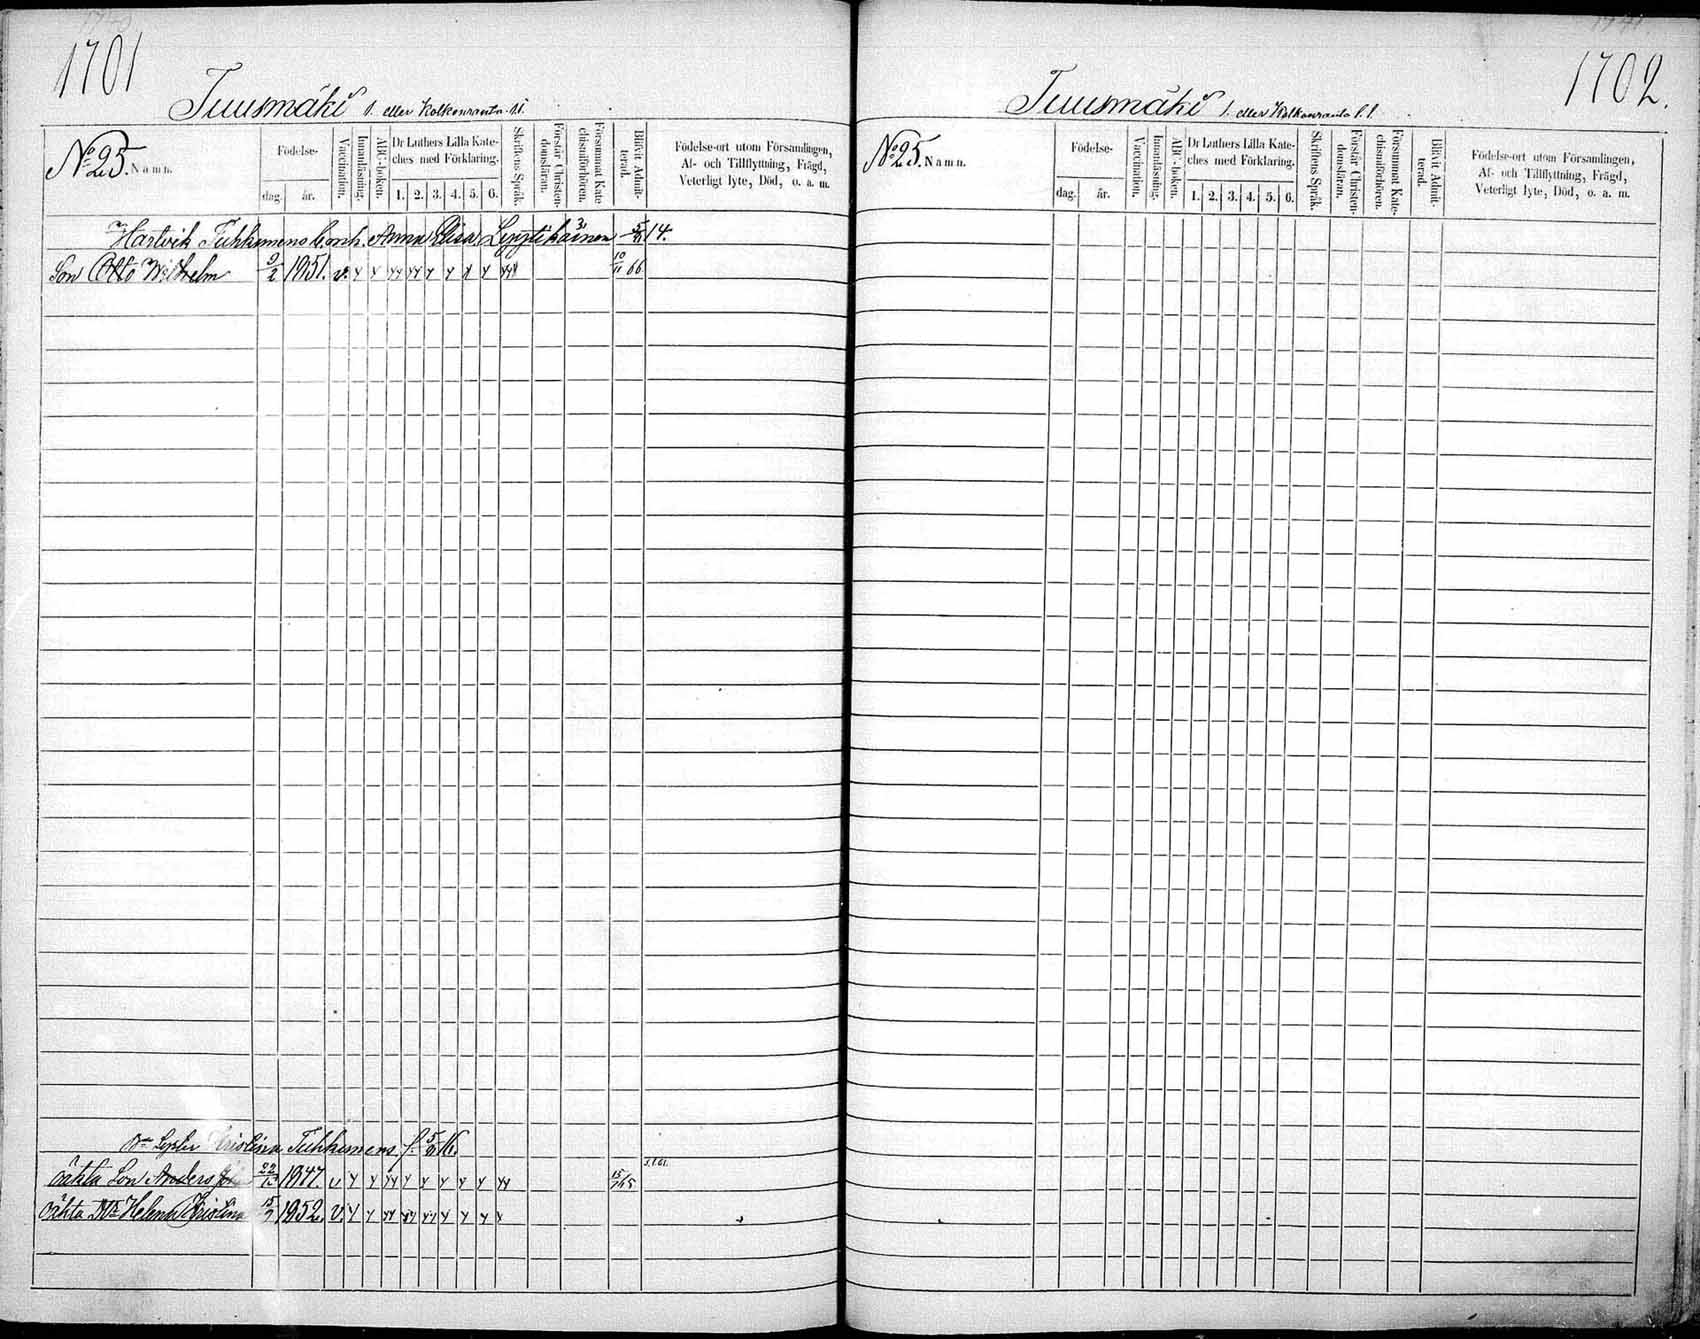 1701
Tuusmäki 1. eller Kolkonranta
No 25. Namn.
Födelse-
dag. år.
Vaccination.
Innanläsning.
ABC-boken.
Dr Luthers Lilla Kate-
ches med Förklaring.
1. 2. 3. 4. 5. 6.
Skriftens Språk.
Förstår Christen-
domsläran.
Försummat Kate
chismiförhören.
Blifvit Admit-
terad.
Födelse-ort utom Församlingen,
Af- och Tillflyttning, Frägd,
Veterligt lyte, Död, o. a. m.
Hartvik Tuhkunens Anna Elisa 14.
Son Otto Wilhelm 9/2 1851. v. 10/11 66
Kristina Tuhkunens f. 16.
oäkta Son Anders 1847. v
oäkta Helena Kristina 1852. v.
1702.
Tuusmäki 1. eller Kolkonranta
No 25. Namn.
Födelse-
dag. år.
Vaccination.
Innanläsning.
ABC-boken.
Dr Luthers Lilla Kate-
ches med Förklaring.
1. 2. 3. 4. 5. 6.
Skriftens Språk.
Förstår Christen-
domsläran.
Försummat Kate-
chismiförhören.
Blifvit Admit-
terad.
Födelse-ort utom Församlingen,
Af- och Tillflyttning, Frägd,
Veterligt lyte, Död, o. a. m.